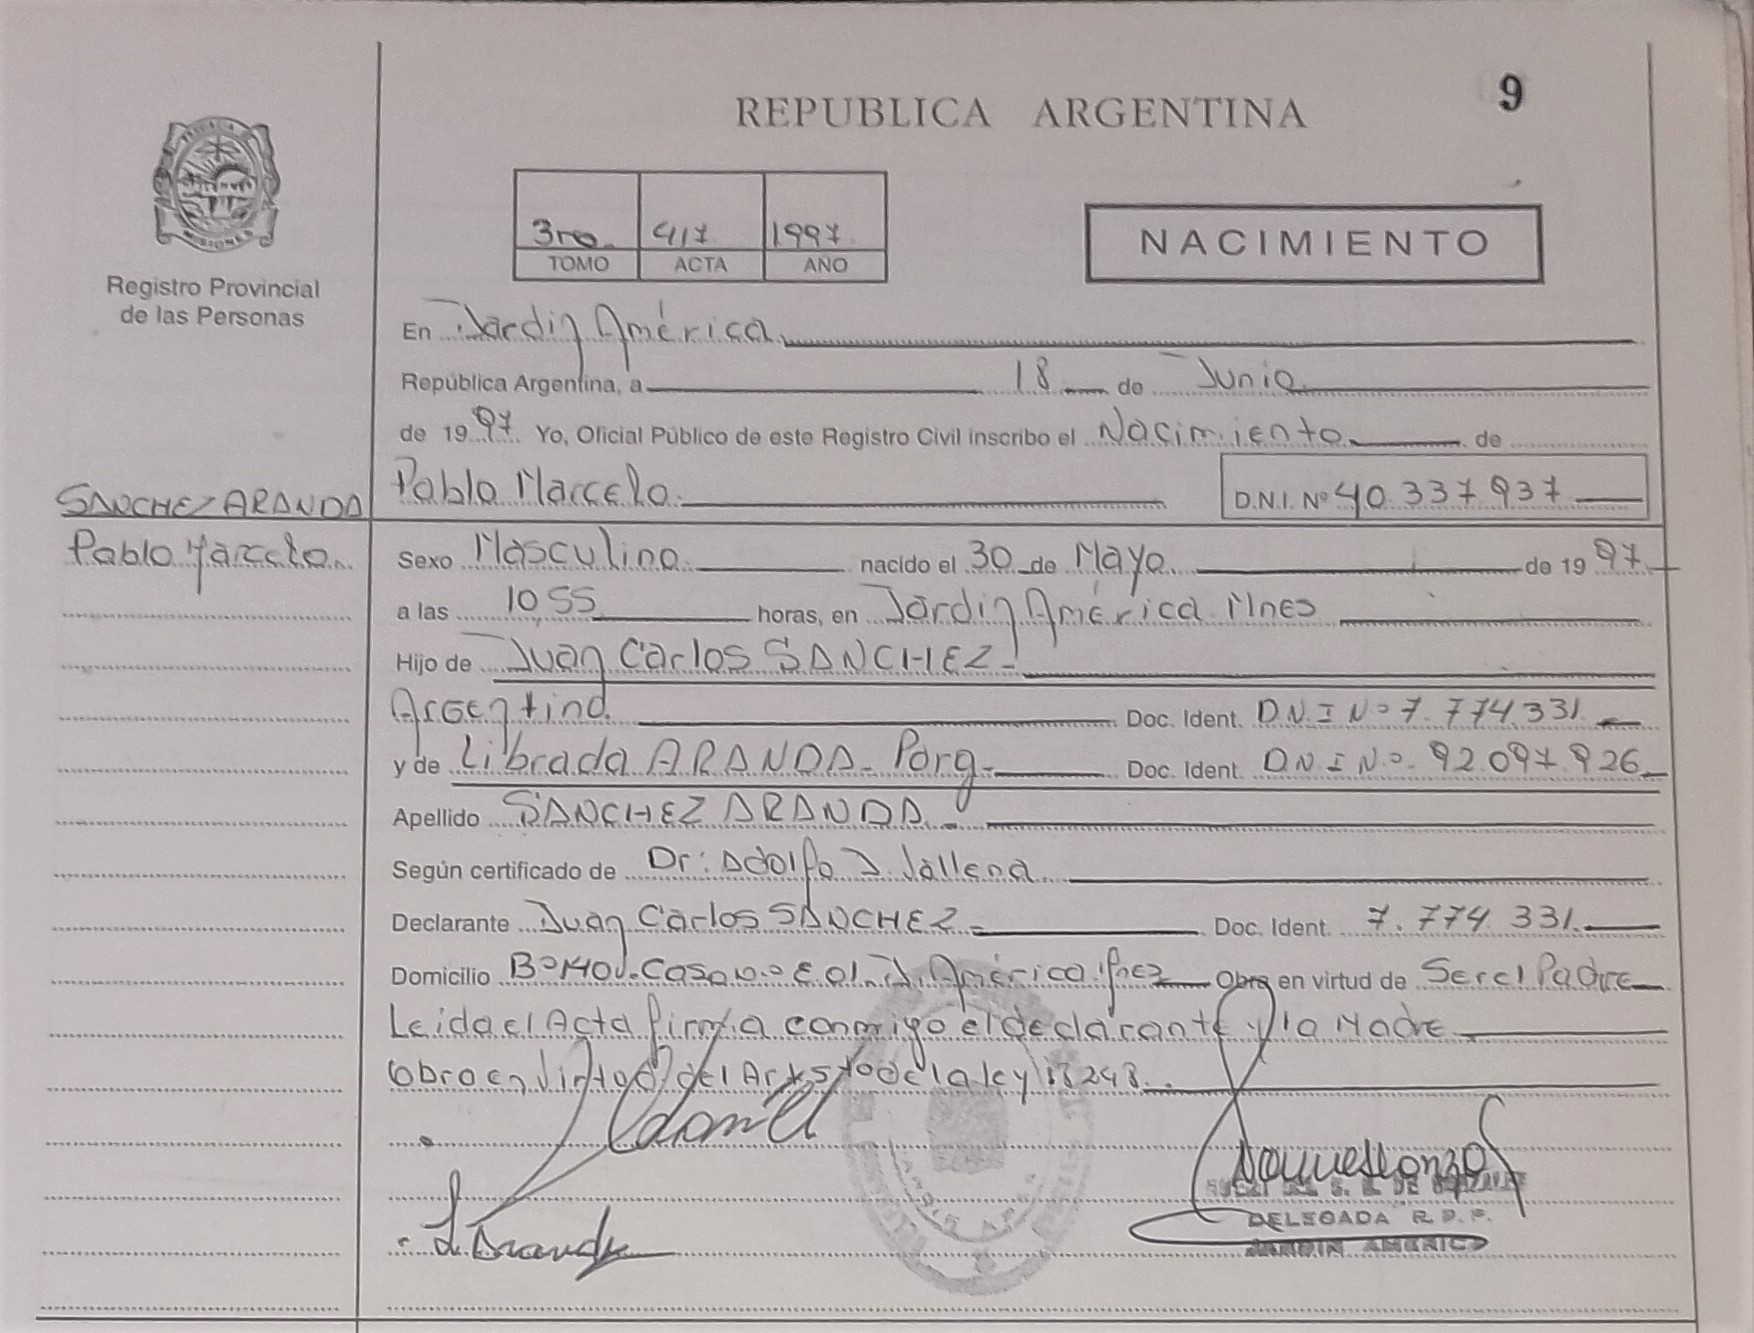 9
REPUBLICA ARGENTINA
3ro. 417 1997
TOMO ACTA AÑO
NACIMIENTO
MISIONES
Registro Provincial
de las Personas
En Jardin América
República Argentina, a 18 de Junio
de 1997. Yo, Oficial Público de este Registro Civil inscribo el Nacimiento de
Pablo Marcelo. D.N.I. Nº 40.337.937
SANCHEZ ARANDA
Pablo Marcelo.
Sexo Masculino. nacido el 30 de Mayo de 1997
a las 10 55 horas, en Jardin América Mnes
Hijo de Juan Carlos SANCHEZ-
Argentino. Doc. Ident. D.N.I Nº 7.774.331.
y de Librada ARANDA- Parg- Doc. Ident. D.N.I Nº. 92.097.926
Apellido SANCHEZ ARANDA.-
Según certificado de Dr: Adolfo J.
Declarante Juan Carlos SANCHEZ.- Doc. Ident. 7.774.331.
Domicilio Bº Casa América Obra en virtud de Ser el Padre
Leida el Acta firma conmigo el declarante y la Madre
Obra en Virtud del Art 5to de la ley 18248.-
DELEGADA R.P.P.
JARDIN AMERICA